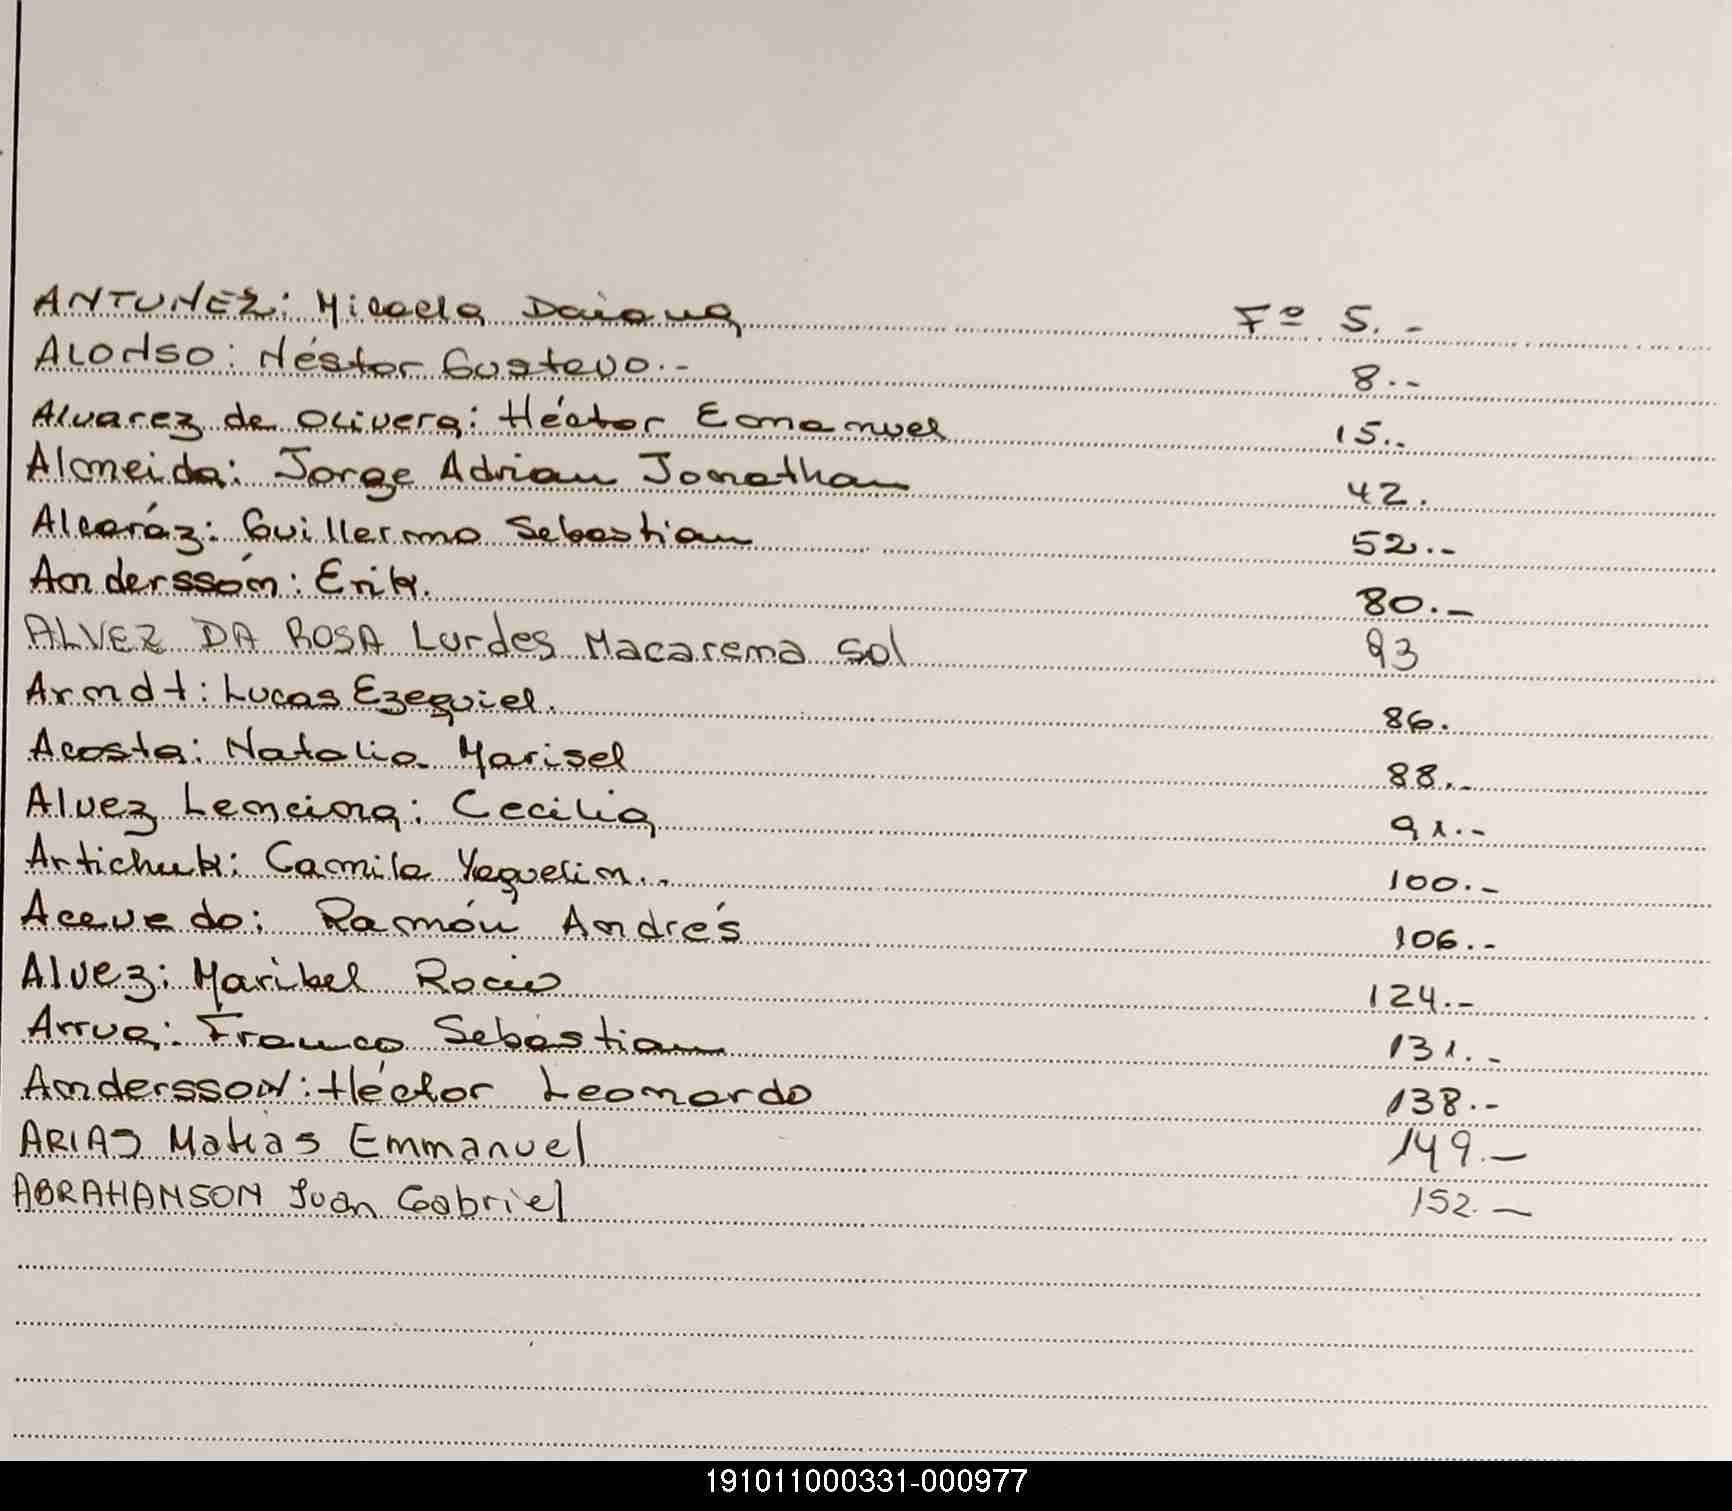 ANTUNEZ: Micaela Daiana Fº 5.-
ALONSO: Néstor Gustavo.- 8.--
Alvarez de Olivera: Héctor Emanuel 15..
Almeida: Jorge Adrian Jonathan 42.
Alcaráz: Guillermo Sebastian 52.--
Anderssón: Erik. 80.-
ALVEZ DA ROSA Lurdes Macarena Sol 83
Arndt: Lucas Ezequiel. 86.
Acosta: Natalia Marisel 88.-
Alvez Lencina: Cecilia 91.--
Artichuk: Camila Yaquelin.. 100.-
Acevedo: Ramón Andrés 106.--
Alvez: Maribel Rocio 124.--
Arrua: Franco Sebastian 131.-
Andersson: Héctor Leonardo 138.--
ARIAS Matias Emmanuel 149.-
ABRAHANSON Juan Gabriel 152.-
191011000331-000977